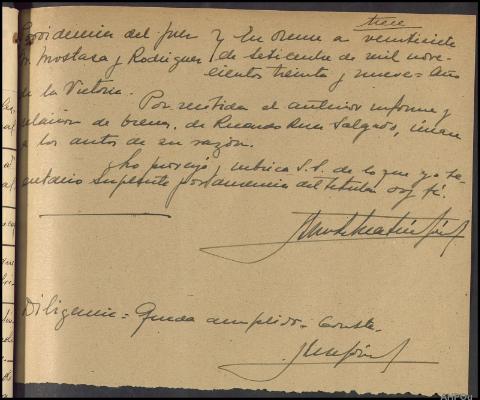 trece
Providencia del Juez y En Orense a veintisiete
Sr. Mostaza y Rodriguez de Setiembre de mil nove-
cientos treinta y nueve- Año
de la Victoria.
Por recibida el anterior informe y
relacion de bienes, de Ricardo Ruiz Salgado, únan
a los autos de su razón.
Lo proveyó, rubrica S.S. de lo que yo se-
cretario Suplente por ausencia del titular doy fé.
Diligencia = Queda cumplido. Conste.